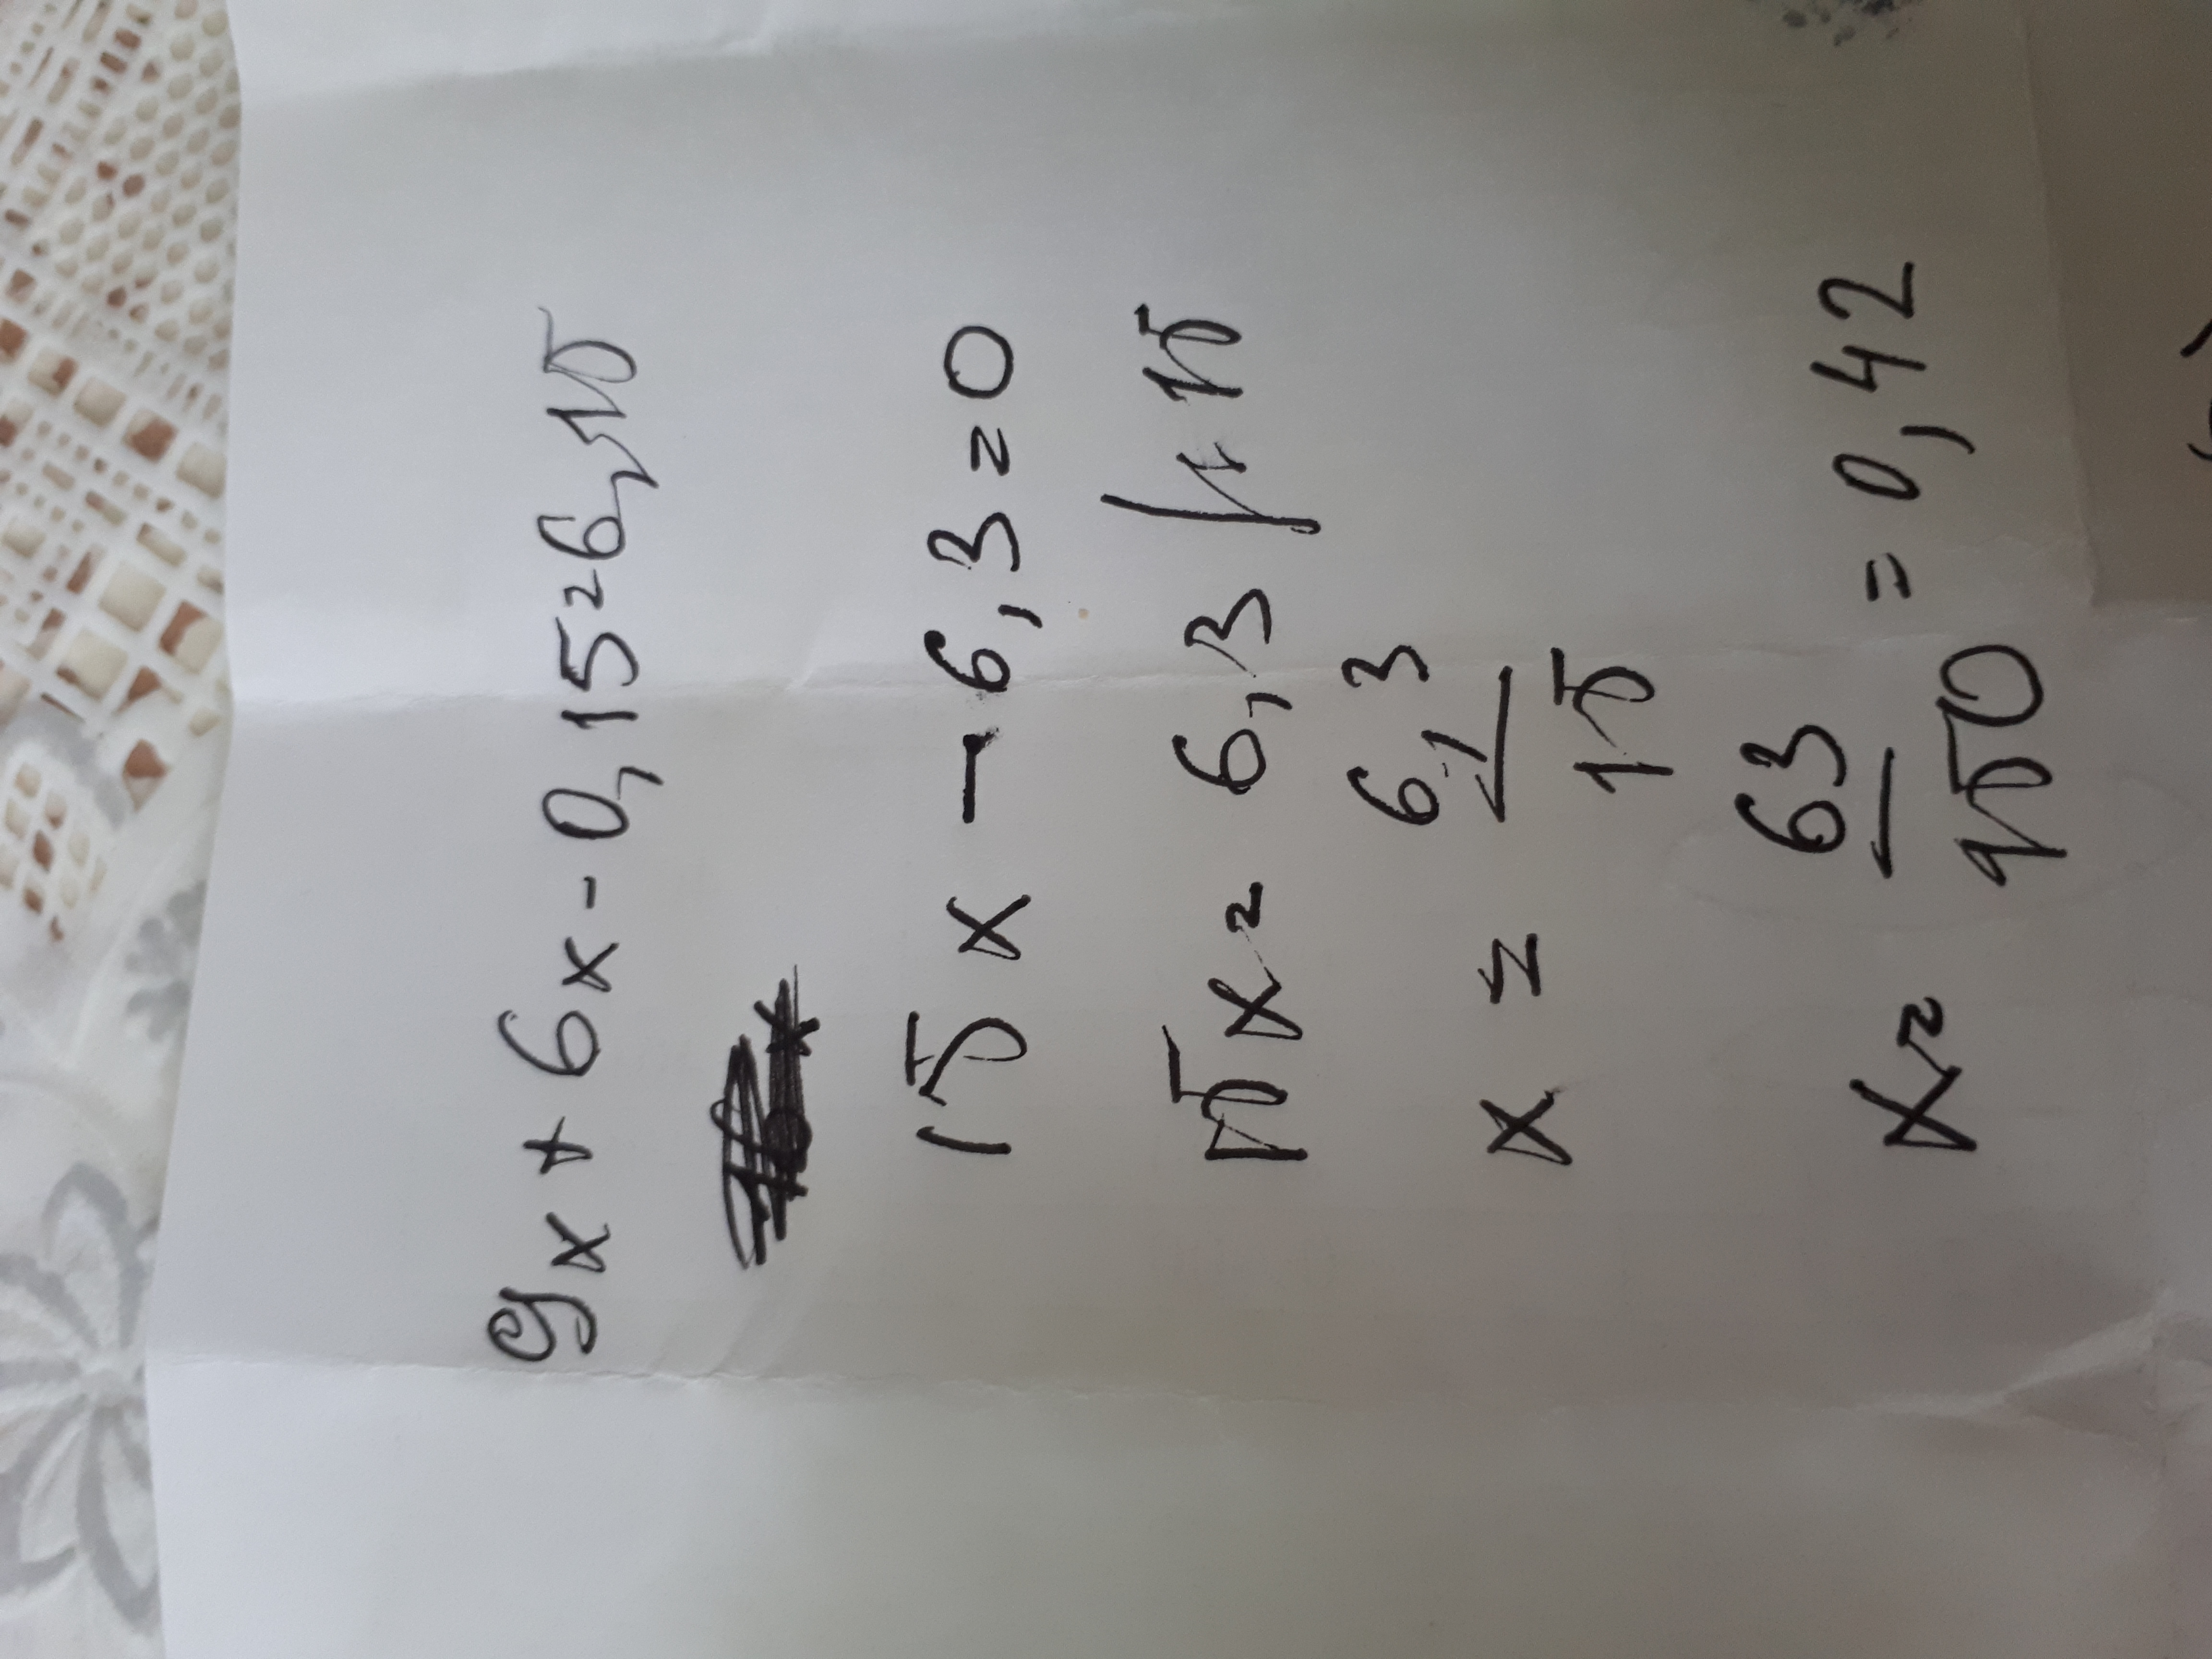 9x + 6x - 0,15 = 6,15
15x - 6,3 = 0
15x = 6,3 / : 15
x = 6,3 / 15
x = 63 / 150 = 0,42